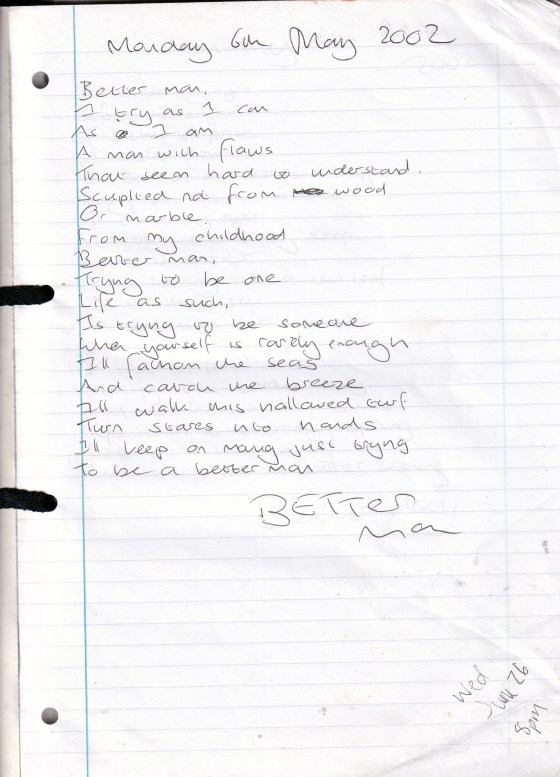 Monday 6th May 2002
Better man,
I try as I can
As I am
A man with flaws
That seem hard to understand.
Sculpted not from wood
Or marble.
From my childhood
Better man,
Trying to be one
Life as such,
Is trying to be someone
When yourself is rarely enough
I'll fathom the seas
And catch the breeze
I'll walk this hallowed turf
Turn stares into hands
I'll keep on moving just trying
To be a better man
BETTer
Man
Wed
June 26
8pm